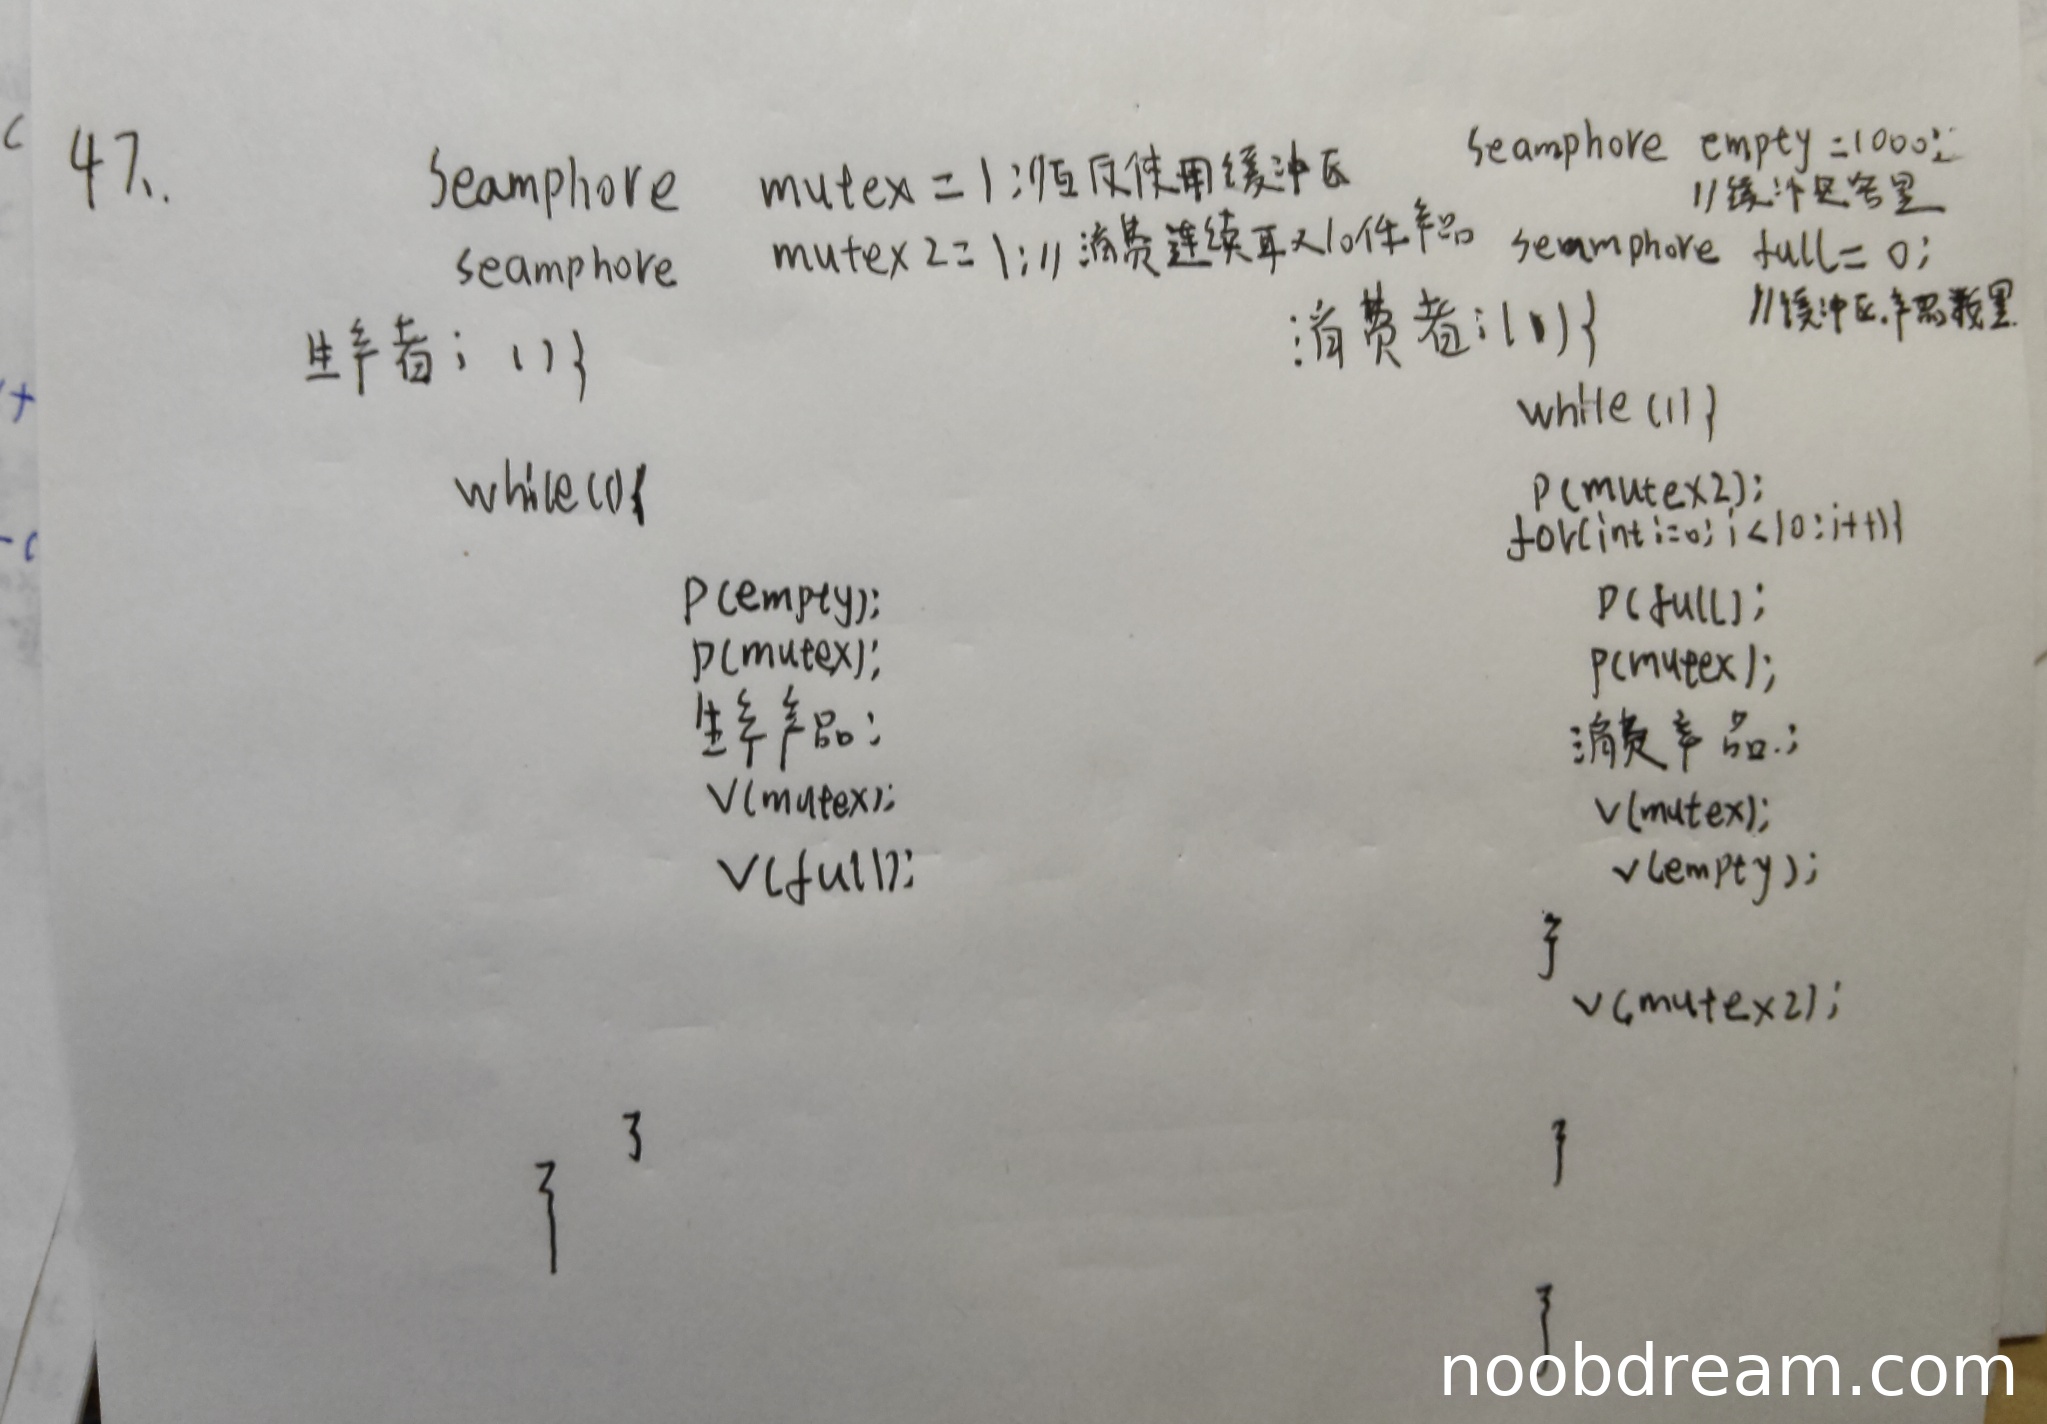 47.
seamphore mutex = 1; //互斥使用缓冲区
seamphore mutex2 = 1; // 消费连续取10件产品
seamphore empty = 1000;
//缓冲区容量
seamphore full = 0;
//缓冲区产品数量
生产者: () {
while(1){
P(empty);
P(mutex);
生产产品;
V(mutex);
V(full);
}
}
消费者: () {
while(1){
P(mutex2);
for(int i=0; i<10; i++){
P(full);
P(mutex);
消费产品;
V(mutex);
V(empty);
}
V(mutex2);
}
}
noobdream.com